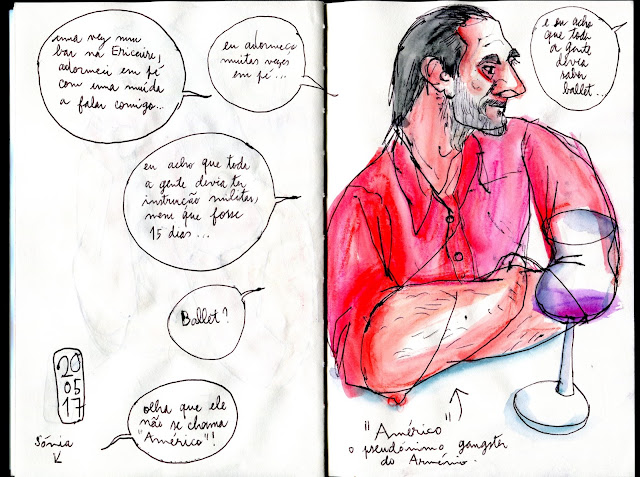 uma vez num
bar na Ericeira,
adormeci em pé
com uma miúda
a falar comigo...
eu adormeço
muitas vezes
em pé...
eu acho que toda
a gente devia ter
instrução militar,
nem que fosse
15 dias...
Ballet?
20
05
17
olha que ele
não se chama
"Américo"!
Sónia
e eu acho
que toda
a gente
devia
saber
ballet...
"Américo"
o pseudónimo gangster
do Arménio.